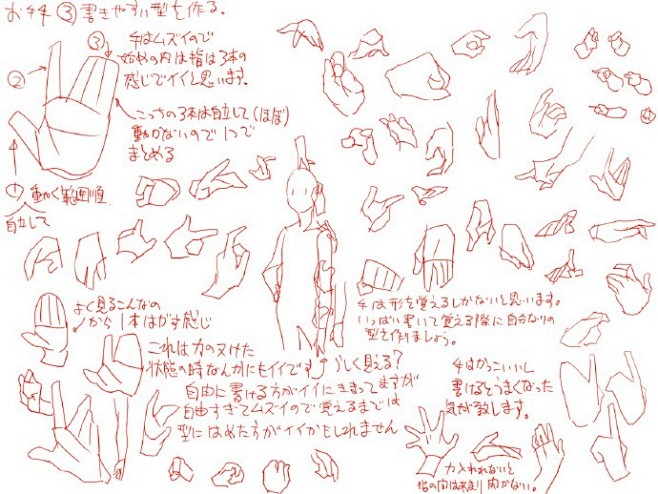 お手々③書きやすい型を作る。
③
②
①
手はムズイので
始めの内は指は3本の
感じでイイと思います。
こっちの3本は自立して(ほぼ)
動かないので1つで
まとめる
動かく範囲順
自立して
よく見るこんなの
から1本はがす感じ
これは力のヌけた
状態の時なんかにもイイです
らしく見える?
自由に書ける方がイイにきまってますが
自由すぎてムズイので覚えるまでは
型にはめた方がイイかもしれません
手は形を覚えるしかないと思います。
いっぱい書いて覚える際に自分なりの
型を作りましょう。
手はかっこいいし
書けるとうまくなった
気が致します。
力入れないと
指の内は余り開かない。